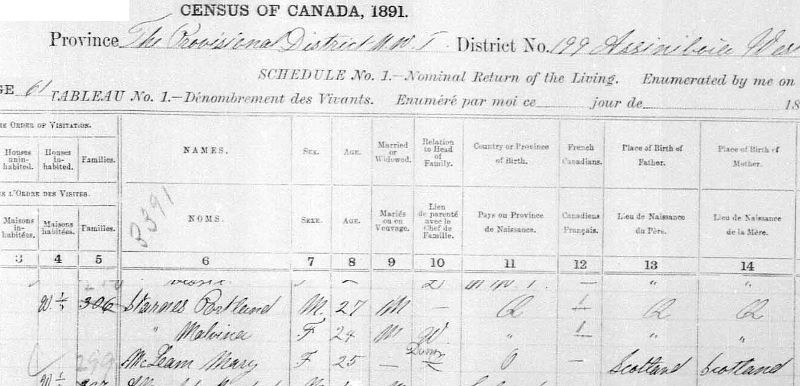 CENSUS OF CANADA, 1891.
Province The Provisional District N.W.T. District No. 199 Assiniboia West
SCHEDULE No. 1.—Nominal Return of the Living. Enumerated by me on
GE 61 TABLEAU No. 1.—Dénombrement des Vivants. Enuméré par moi ce jour de 18
HE ORDER OF VISITATION. NAMES. SEX. AGE. Married or Widowed. Relation to Head of Family. Country or Province of Birth. French Canadians. Place of Birth of Father. Place of Birth of Mother.
Houses uninhabited. Houses inhabited. Families.
E L'ORDRE DES VISITES. 3391
Maisons inhabitées. Maisons habitées. Familles. NOMS. SEXE. AGE. Mariés ou en Veuvage. Lien de parenté avec le Chef de Famille. Pays ou Province de Naissance. Canadiens Français. Lieu de Naissance du Père. Lieu de Naissance de la Mère.
3 4 5 6 7 8 9 10 11 12 13 14
306 Starnes Cortland M. 27 M — Q 1 Q Q
" Malvina F 24 M W " 1 " "
299 McLeam Mary F 25 — Dom O — Scotland Scotland